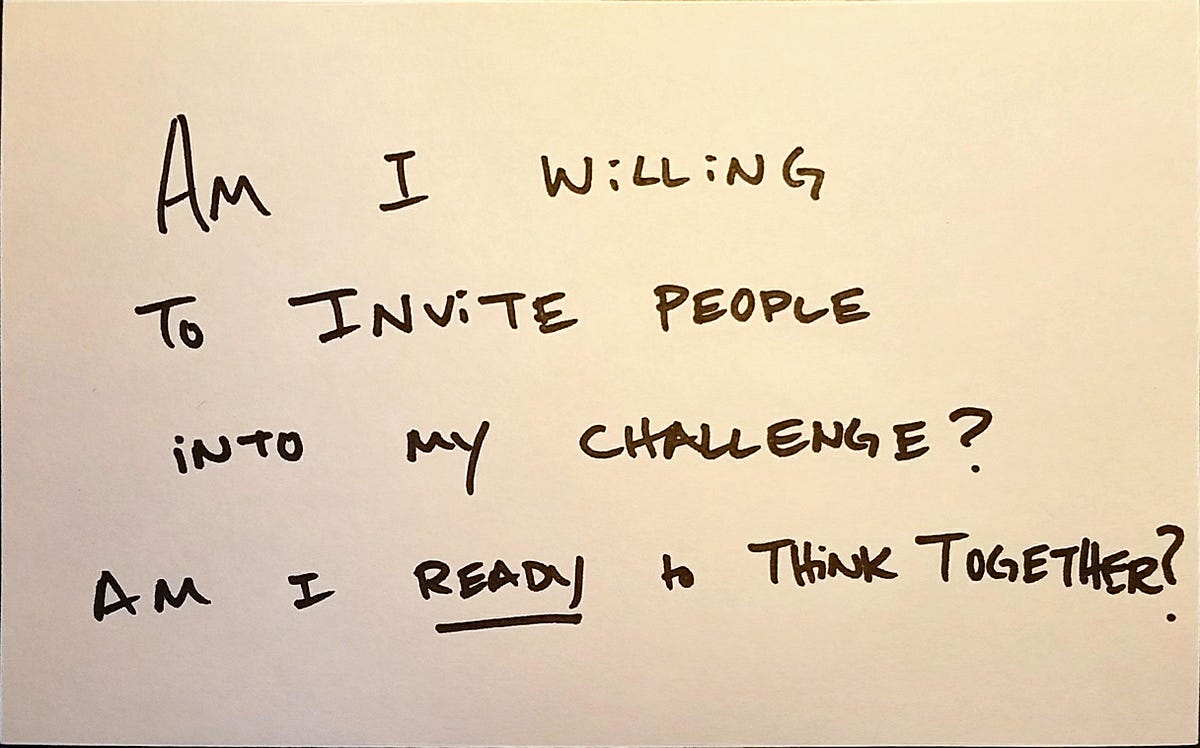 Am I WiLLiNG
To INViTE PEOPLE
iNTO MY CHALLENGE?
AM I READY to THiNK TOGETHER?